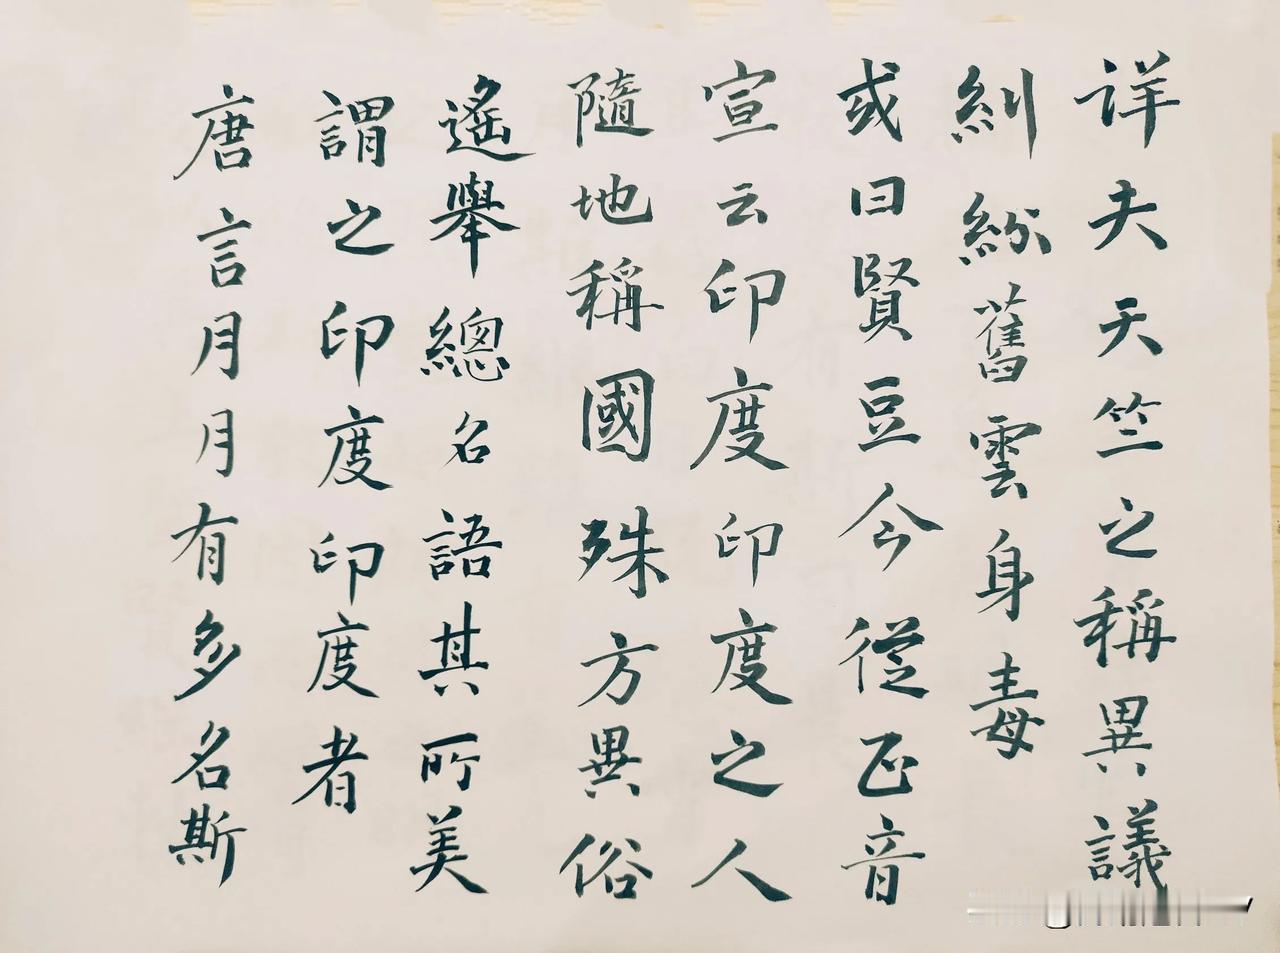 詳夫天竺之稱異議
糾紛舊雲身毒
或曰賢豆今從正音
宣云印度印度之人
隨地稱國殊方異俗
遙舉總名語其所美
謂之印度印度者
唐言月月有多名斯